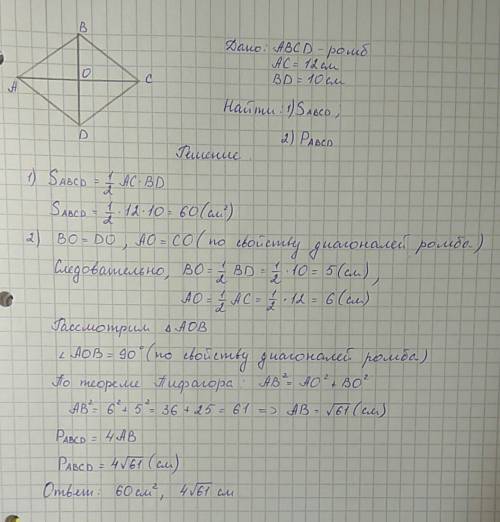 B
Дано: ABCD - ромб
AC = 12 см
BD = 10 см
O
A
C
Найти: 1) S ABCD;
D
2) P ABCD
Решение.
1) S ABCD = 1/2 AC · BD
S ABCD = 1/2 · 12 · 10 = 60 (см²)
2) BO = DO, AO = CO (по свойству диагоналей ромба)
Следовательно, BO = 1/2 BD = 1/2 · 10 = 5 (см),
AO = 1/2 AC = 1/2 · 12 = 6 (см)
Рассмотрим △AOB
∠AOB = 90° (по свойству диагоналей ромба)
По теореме Пифагора: AB² = AO² + BO²
AB² = 6² + 5² = 36 + 25 = 61 => AB = √61 (см)
P ABCD = 4AB
P ABCD = 4√61 (см)
Ответ: 60 см², 4√61 см